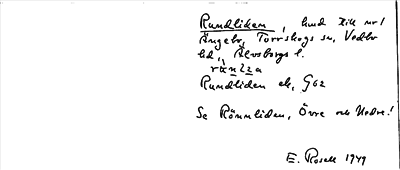 Rundliden, hmd till nr 1
Ängebo, Torrskogs sn, Vedbo
hd, Älvsborgs l.
Rundliden ek, G62
Se Rönnliden, Övre och Nedre!
E. Rosell 1949